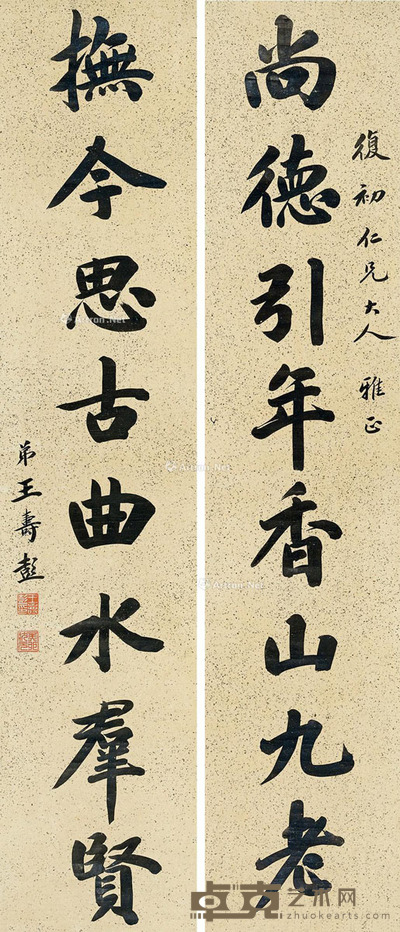 復初仁兄大人 雅正
尚德引年香山九老
撫今思古曲水羣賢
弟王壽彭
Artron.Net
卓克艺术网
zhuokearts.com